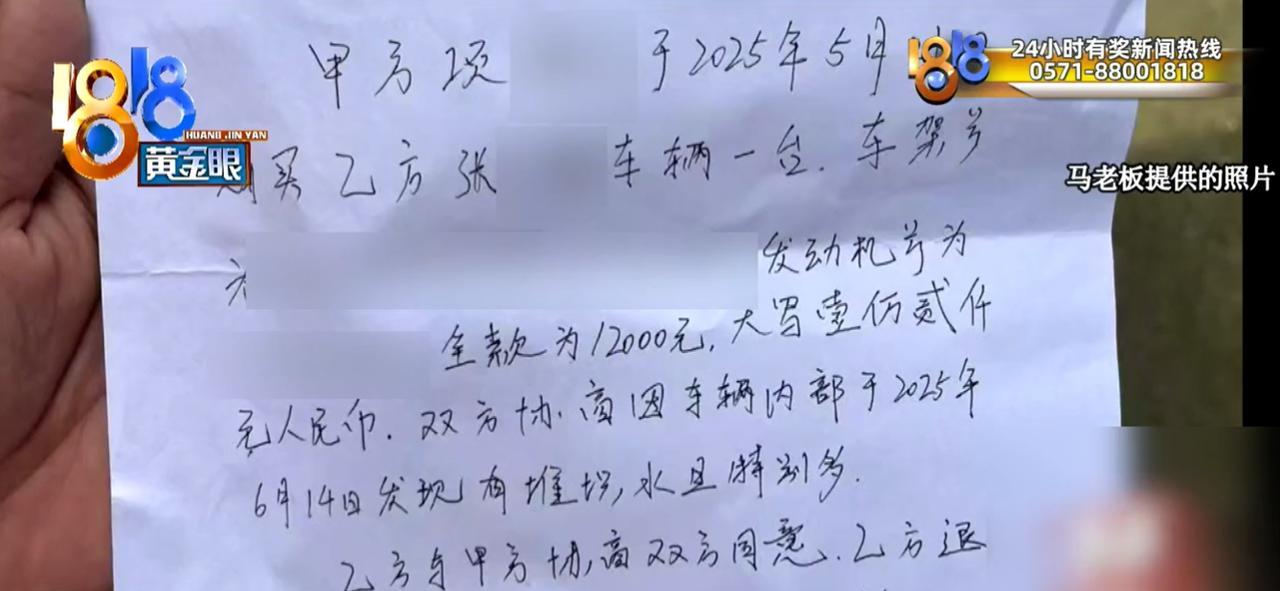 1818
HUANG JIN YAN
黄金眼
1818
24小时有奖新闻热线
0571-88001818
马老板提供的照片
甲方项 于2025年5月
买乙方张 车辆一台.车架号
发动机号为
全款为12000元,大写壹仟贰仟
元人民币.双方协商因车辆内部于2025年
6月14日发现有堆积,水且特别多.
乙方与甲方协商双方同意.乙方退